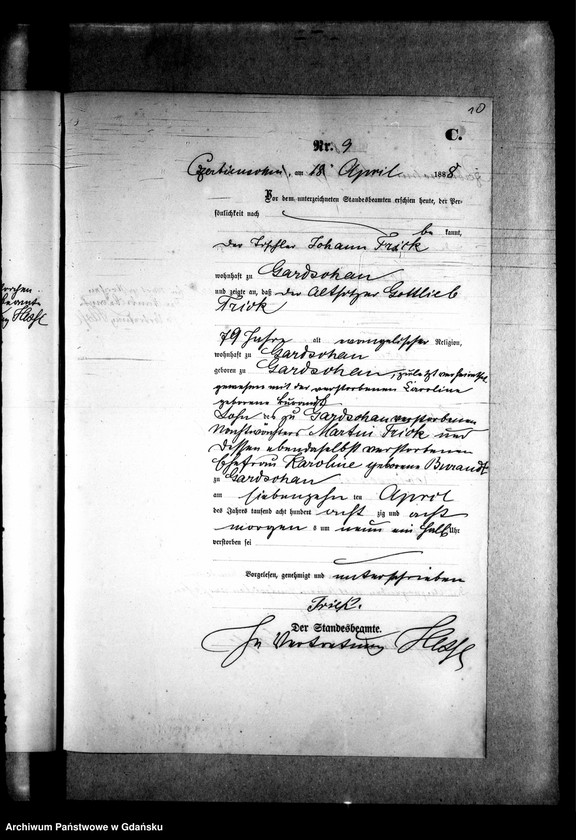 10
C.
Nr. 9
am 18 April 1888
Vor dem unterzeichneten Standesbeamten erschien heute, der Per-
sönlichkeit nach
be kannt,
der Tischler Johann Frick
wohnhaft zu Gardschau
und zeigte an, daß der Altsitzer Gottlieb
Frick
79 Jahre alt evangelischer Religion,
wohnhaft zu Gardschau
geboren zu Gardschau, zuletzt verheirathet
gewesen mit der verstorbenen Caroline
geborene Burandt
Sohn des zu Gardschau verstorbenen
Martin Frick und
dessen ebendaselbst verstorbenen
Ehefrau Karoline geborene Burandt
zu Gardschau
am siebenzehn ten April
des Jahres tausend acht hundert acht zig und acht
morgen s um neun ein halb Uhr
verstorben sei
Vorgelesen, genehmigt und unterschrieben
Frick.
Der Standesbeamte.
In Vertretung
Archiwum Państwowe w Gdańsku